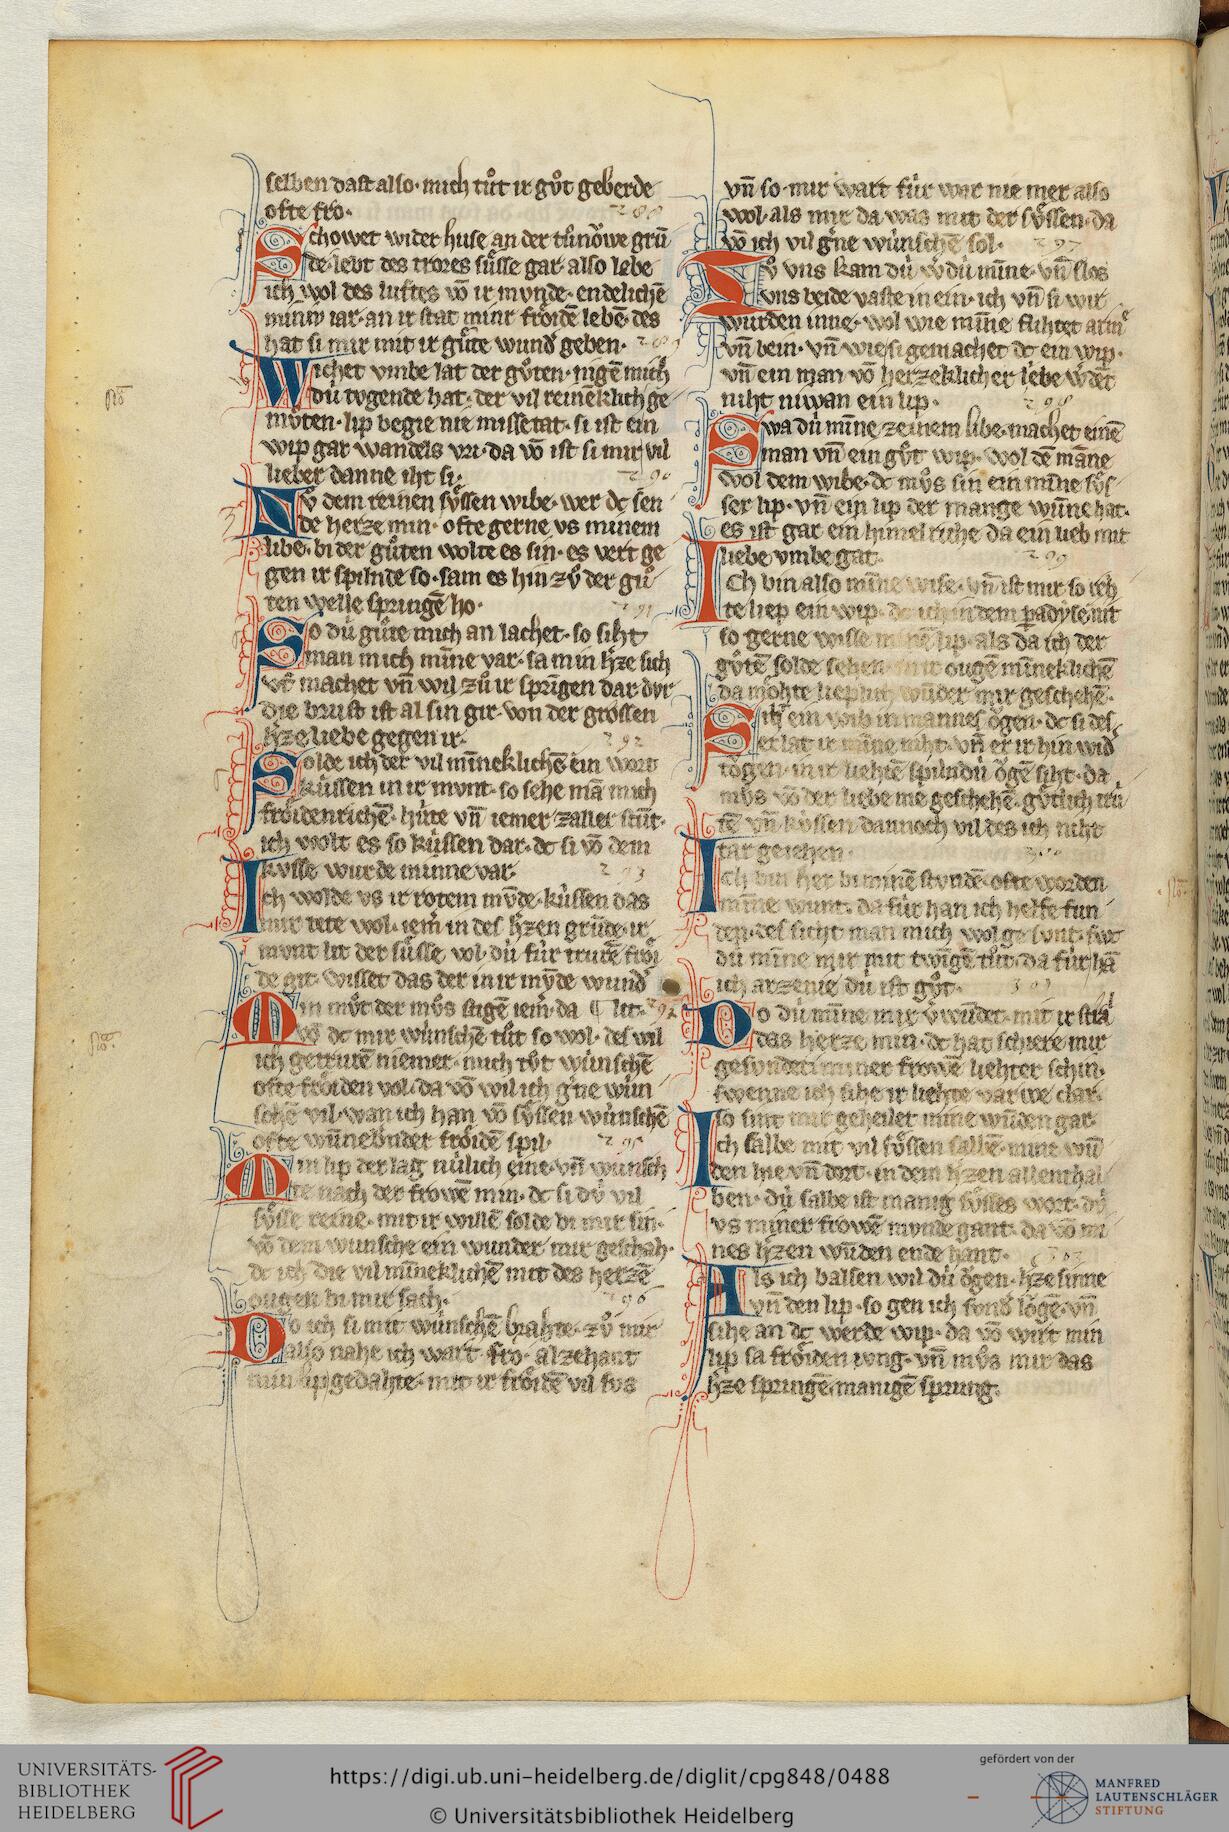 selben dast also · mich tuͦt ir guͦt geberde
ofte fro · 288
Schowet wider huse an der tuͤnoͮwe gruͤ
de · lebt des trores suͤsse gar · also lebe
ich wol des luftes vō ir mvnde · endelichē
minuv iar · an ir stat minr froͤidē lebē · des
hat si mir mit ir guͤte wund͛ geben · 289
Wichet vmbe lat der guͦten · nigē mich
duͥ tvgende hat · der vil reinēklich ge
muͦten · lip begie nie missetat · si ist ein
wip gar wandels vri · da vō ist si mir vil
lieber danne iht si · 290
Nv dem reinen syͤssen wibe · wer dc sen
de herze min · ofte gerne vs minem
libe · bi der guͦten wolte es sin · es vert ge
gen ir spilnde so · sam es hin zvͦ der guͦ
ten welle springē ho · 291
So duͥ guͦte mich an lachet · so siht
man mich mīne var · sa min h͛ze sich
vf machet vn̄ wil zuͦ ir sprīgen dar dvr
die brust ist al sin gir · von der grossen
h͛ze liebe gegen ir · 292
Solde ich der vil mīneklichē ein wort
kuͥssen in ir mvnt · so sehe mā mich
froͤidenrichē · huͥte vn̄ iemer zaller stūt ·
ich wolt es so kuͥssen dar · dc si vō dem
kvsse wurde minne var · 293
Ich wolde vs ir rotem mv̄de · kuͥssen das
mir tete wol · iem͛ in des h͛zen grūde · ir
mvnt lit der suͤsse vol · duͥ fuͥr trurē froͤi
de git · wisset das der in ir mv̄de wund͛
Min muͦt der mvͦs stigē iem͛ · da ¶ lit · 294
vō dc mir wuͥnschē tuͦt so wol · des wil
ich getrurē niemer · mich tvͦt wuͥnschē
ofte froͤiden vol · da vō wil ich g͛ne wuͥn
schē vil · wan ich han vō syͤssen wuͥnschē
ofte wūnebndet froͤidē spil · 295
Min lip der lag nuͥlich eine · vn̄ wunsch
te nach der frowē min · dc si dvͥ vil
syͤsse reine · mit ir willē solde bi mir sin ·
vō dem wunsche ein wunder mir geschah ·
dc ich die vil mīneklichē mit des herzē
ougen bi mir sach · 296
Do ich si mit wuͥnschē brahte · zvͦ mir
also nahe ich wart · fro · alzehant
min lip gedahte · mit ir froͤidē vil svs
vn̄ so · mir wart fuͥr war nie mer also
wol · als mir da was mit der syͤssen · da
vō ich vil g͛ne wuͥnschē sol · 297
Zvͦ vns kam duͥ v͛ duͥ mīne · vn̄ slos
vns beide vaste in ein · ich vn̄ si wir
wurden inne · wol wie mīne fuͤhtet arm
vn̄ bein · vn̄ wie si gemachet dc ein wip ·
vn̄ ein man vō herzeklicher lebe w͛dēt
niht niwan ein lip · 298
Swa duͥ mīne zeinem libe · machet einē
man vn̄ ein guͦt wip · wol dē māne
wol dem wibe · dc mvͦs sin ein mīne syͤs
ser lip · vn̄ ein lip der mange wūne hat ·
es ist gar ein himelriche da ein lieb mit
liebe vmbe gat · 299
Ich bin also mīne wise · vn̄ ist mir so reh
te liep ein wip · dc ich in dem padyse nit
so gerne wisse minē lip · als da ich der
guͦtē solde sehen · in ir ougē mīneklichē
da moͤhte lieplich wūder mir geschehē ·
Siht ein wib in mannes oͮgen · dc si des
er lat ir mīne niht · vn̄ er ir hin wid͛
toͮgen · in ir liehtē spilndū oͮgē siht · da
mvͦs vō der liebe me geschehē · guͤtlich truͥ
tē vn̄ kvssen dannoch vil des ich niht
tar geiehen · 300
Ich bin her bi minē stvndē · ofte worden
mīne wunt · da fuͥr han ich helfe fun
den · des siht man mich wol gesvnt · swc
duͥ mīne mir mit twīgē tuͦt · da fuͥr hā
ich arzenie duͥ ist guͦt · 301
Do duͥ mīne mir v͛wūdet · mit ir stral
das herze min · dc hat schiere mir
gesvndet · miner frowē liehter schin ·
swenne ich sihe ir liehte varwe clar ·
so sint mir geheilet mine wūden gar
Ich salbe mit vil syͤssen salbē · mine wū
den hie vn̄ dort · in dem h͛zen allenthal
ben · duͥ salbe ist manig syͤsses wort · dvͥ
vs miner frowē mvnde gant · da vō mi
nes h͛zen wūden ende hant · 303
Als ich balsen wil duͥ oͮgen · h͛ze sinne
vn̄ den lip · so gen ich svnd͛ loͮgē · vn̄
sihe an dc werde wip · da vō wirt min
lip sa froͤiden ivng · vn̄ mvͦs mir das
h͛ze springē manigē sprung ·
UNIVERSITÄTS-
BIBLIOTHEK
HEIDELBERG
https://digi.ub.uni-heidelberg.de/diglit/cpg848/0488
© Universitätsbibliothek Heidelberg
gefördert von der
MANFRED
LAUTENSCHLÄGER
STIFTUNG